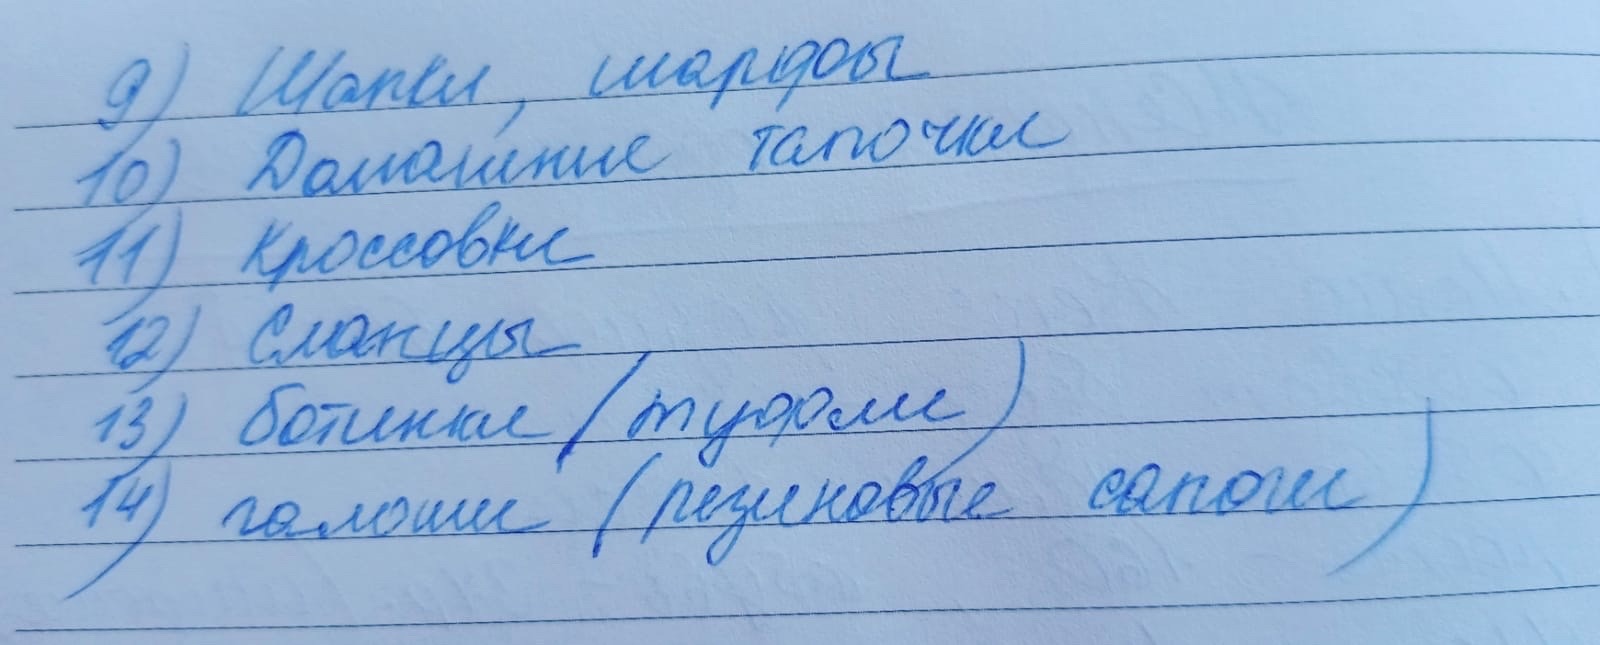 9) Шапки, шарфы
10) Домашние тапочки
11) Кроссовки
12) Сланцы
13) ботинки (туфли)
14) галоши (резиновые сапоги)